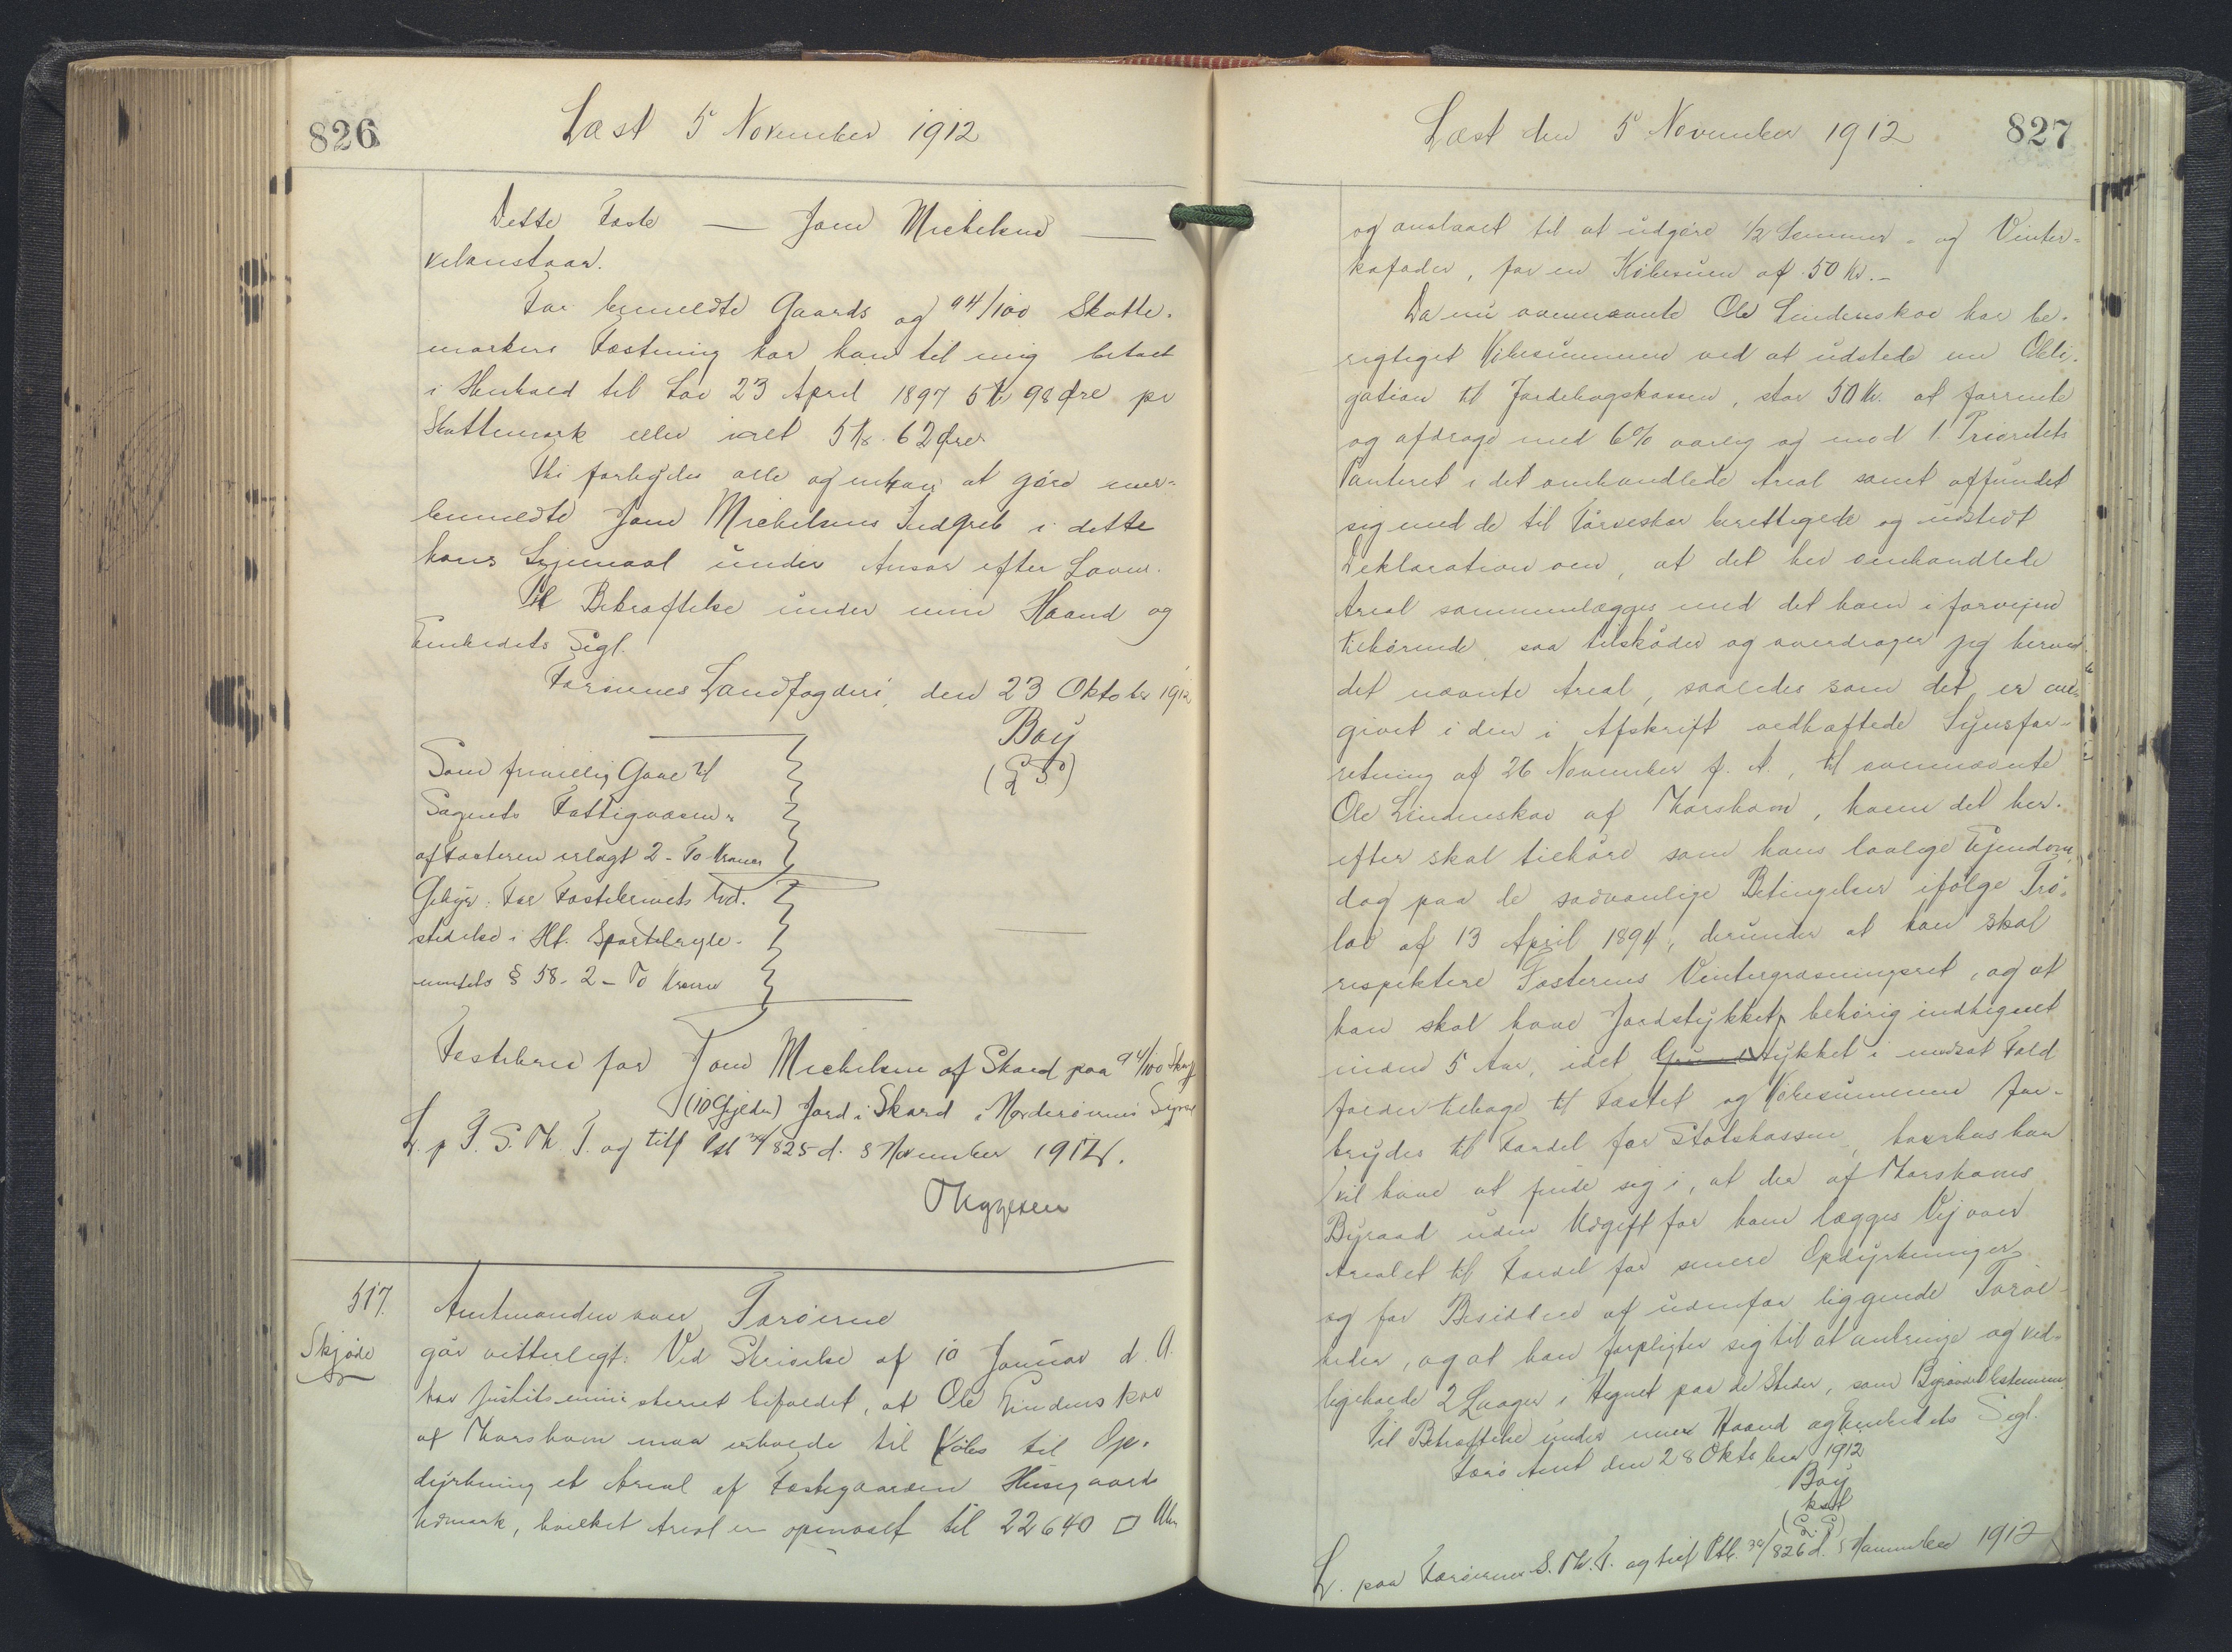 826
Læst 5 November 1912
Dette Fæste — Joen Michelsens —
velanstaar.
For bemeldte Gaards og 94/100 Skatte-
markers Fæstning har han til mig betalt
i Henhold til Lov 23 April 1897 5 Kr 98 Øre pr
Skattemark eller ialt 5 Kr. 62 Øre
Thi forbydes alle og enhver at gøre mer-
bemeldte Joen Michelsens Indgreb i dette
hans Lejemaal under Ansvar efter Loven.
Til Bekræftelse under min Haand og
Embedets Segl.
Færøernes Landfogderi, den 23 Oktober 1912
Bay
(L. S.)
Som frivillig Gave til
Sognets Fattigvæsen
af Fæsteren erlagt 2 - To Kroner
Gebyr: For Fæstebrevets Ud-
stedelse i Hf. Sportelregle-
mentets § 58. 2 - To Kroner
Festebrev for Joen Michelsen af Skard paa 94/100 Skm
(10 Gylden) Jord i Skard i Norderøernes Syssel
L. p F. S. Th. P. og tilf Pstl 34/825 d. 5 November 1912.
517.
Skjøde
Amtmanden over Færøerne
gør vitterligt: Ved Skrivelse af 10 Januar d. A.
har Justitsministeriet bifaldet, at Ole Lindenskov
af Thorshavn maa erholde til Købs til Op-
dyrkning et Areal af Fæstegaarden Husegaards
Udmark, hvilket Areal er opmaalt til 22640 □ Alen
Læst den 5 November 1912
827
og anslaaet til at udgøre 1/2 Sommer- og Vinter-
kofoder, for en Købesum af 50 Kr.-
Da nu ovennævnte Ole Lindenskov har be-
rigtiget Købesummen ved at udstede en Obli-
gation til Jordebogskassen, stor 50 Kr. at forrente
og afdrage med 6% aarlig og mod 1. Prioritets
Panteret i det omhandlede Areal samt affundet
sig med de til Tørveskær berettigede og udstedt
Deklaration om, at det her omhandlede
Areal sammenlægges med det ham i forvejen
tilhørende, saa tilskøder og overdrager jeg herved
det nævnte Areal, saaledes som det er an-
givet i den i Afskrift vedhæftede Synsfor-
retning af 26 November f. A., til ovennævnte
Ole Lindenskov af Thorshavn, hvem det her-
efter skal tilhøre som hans lovlige Ejendom,
dog paa de sædvanlige Betingelser ifølge Prov.
lov af 13 April 1894, derunder at han skal
respektere Fæsterens Vintergræsningsret, og at
han skal have Jordstykket behørig indhegnet
inden 5 Aar, idet Grundstykket i modsat Fald
falder tilbage til Fæstet og Købesummen for-
brydes til Fordel for Statskassen, hvorhos han
vil have at finde sig i, at der af Thorshavns
Byraad uden Udgift for ham lægges Vej over
Arealet til Fordel for senere Opdyrkninger
og for Besiddere af udenfor liggende
heder, og at han forpligter sig til at anbringe og ved-
ligeholde 2 Laager i Hegnet paa de Steder, som Byraadet bestemmer.
Til Bekræftelse under min Haand og Embedets Segl.
Færø Amt den 28 Oktober 1912
Bay
kst
(L. S.)
L. paa Færøernes S. Th. P. og tilf Pstl. 34/826 d. 5 November 1912